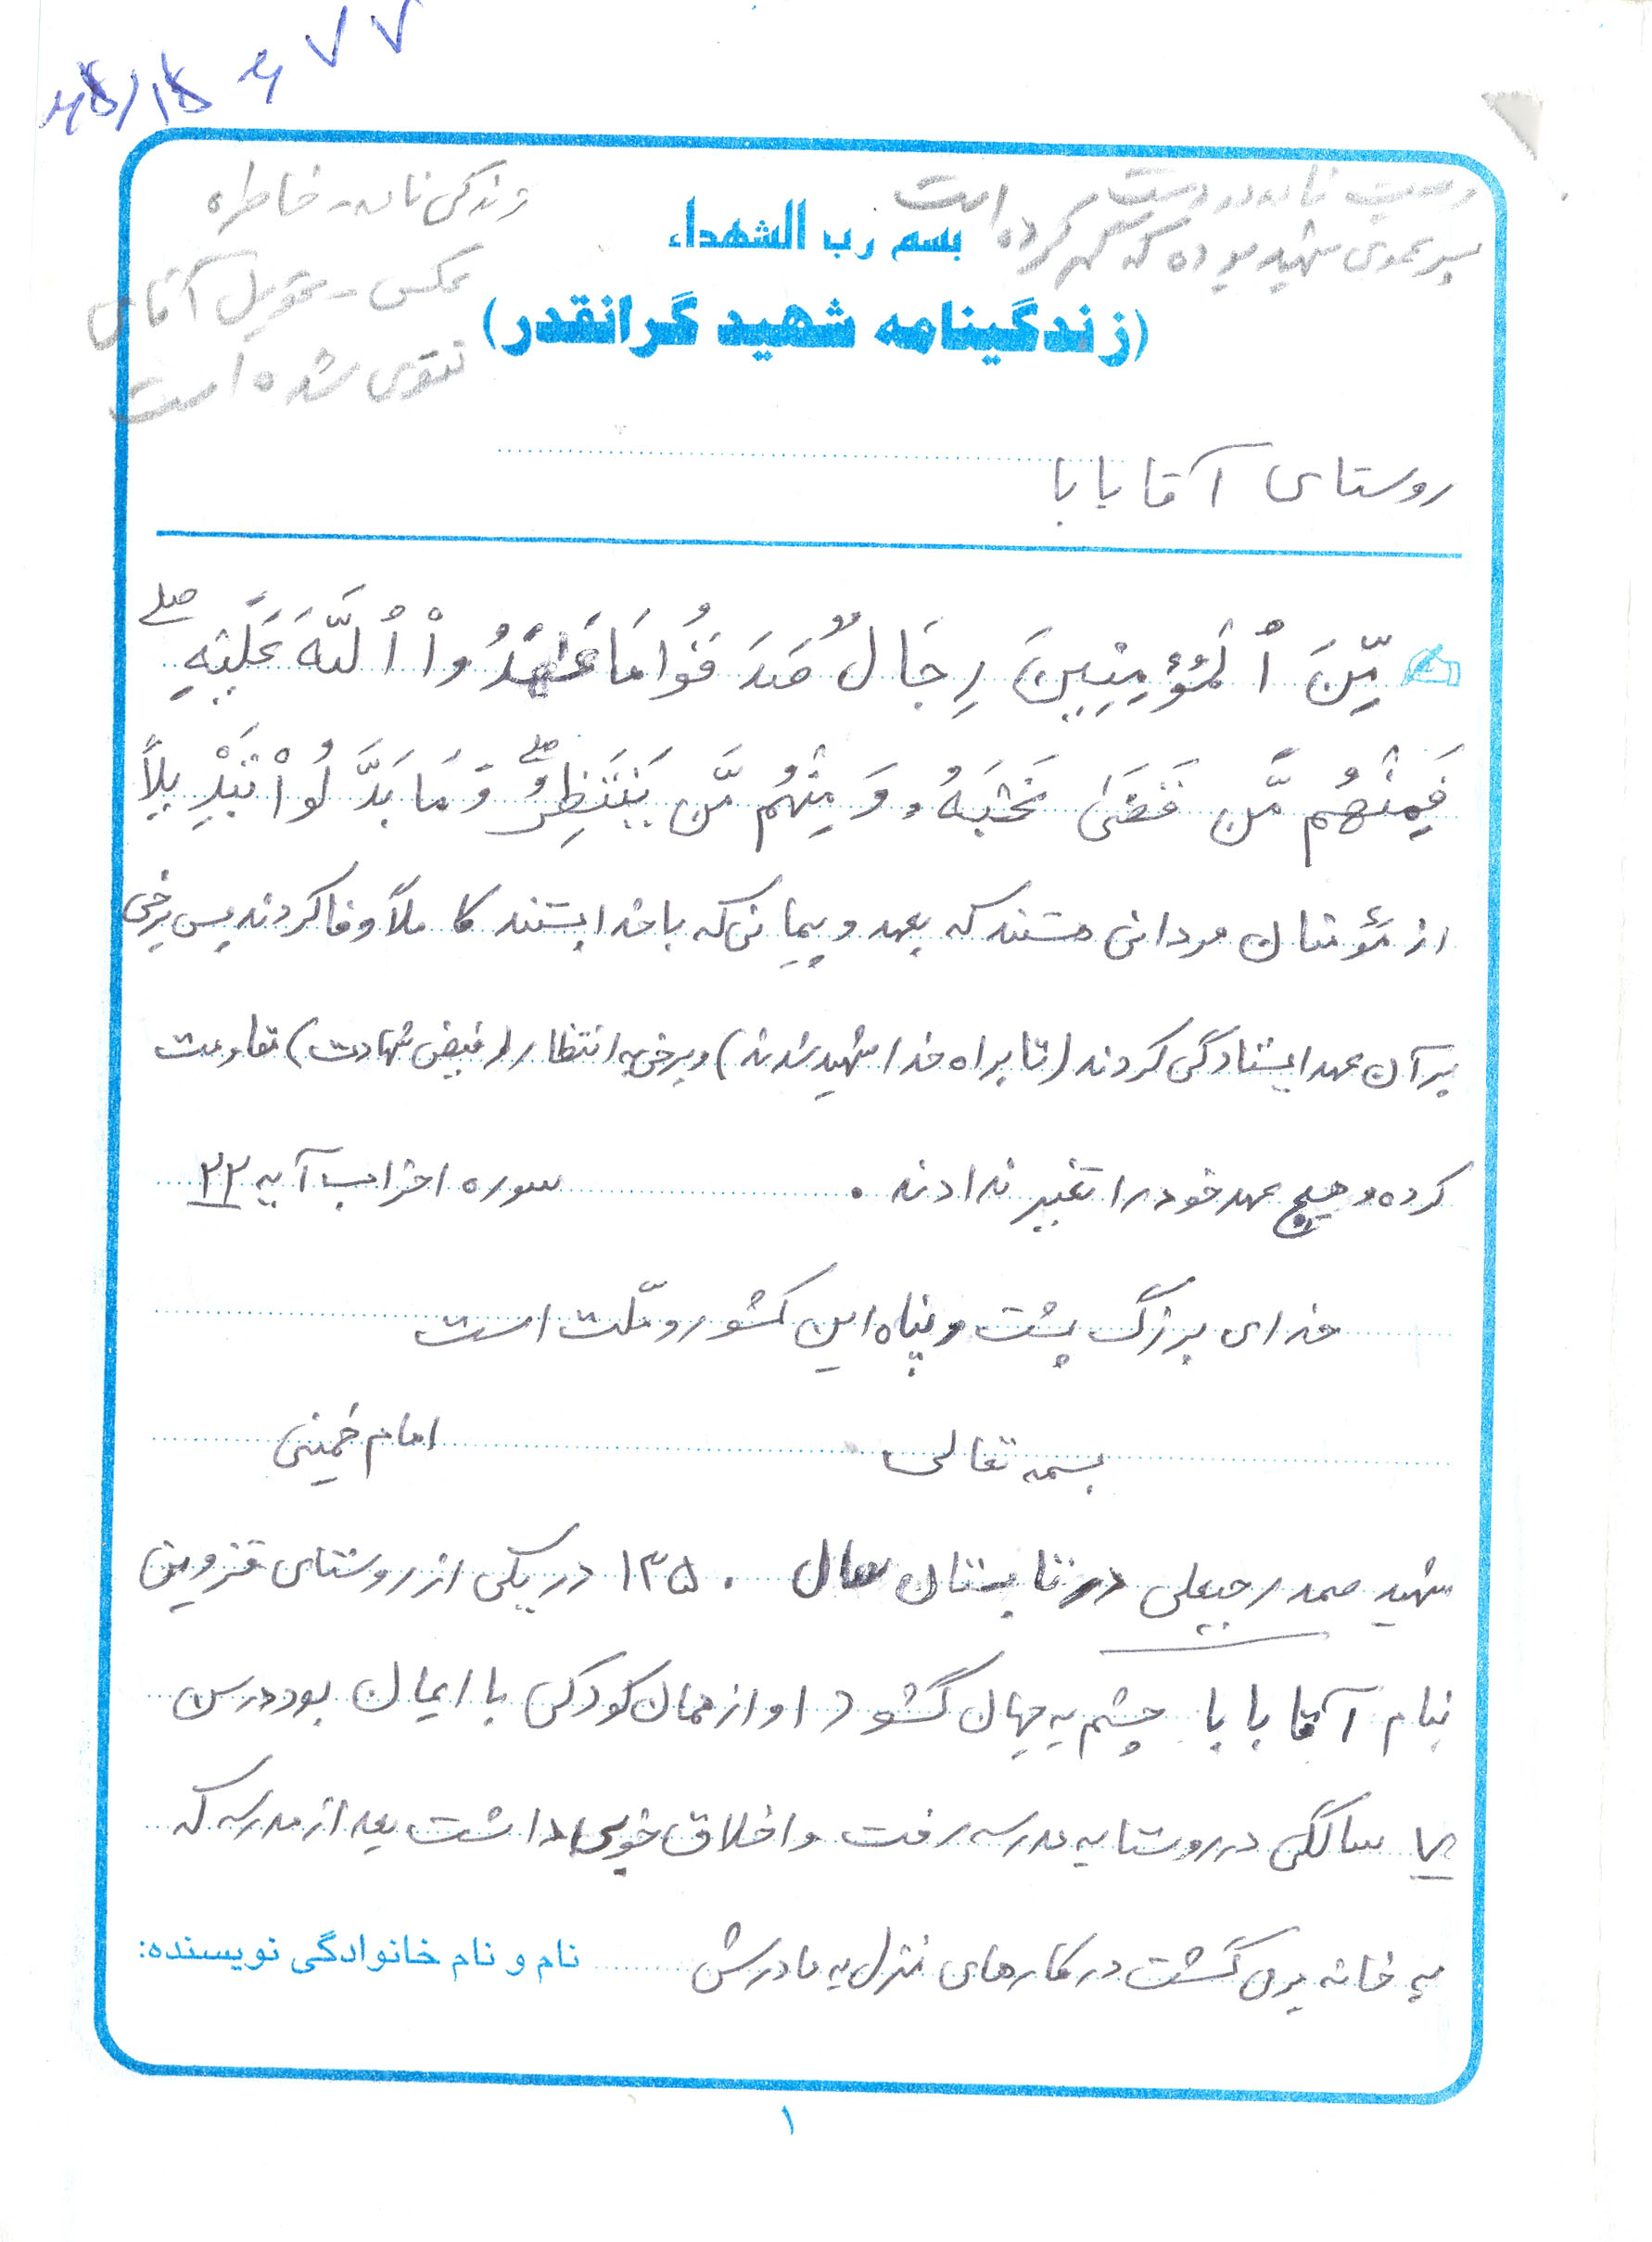 زندگی نامه - خاطره
عکس - تحویل آقای
تقوی شده است
وصیت نامه در دست
پسر عموی شهید بوده که گم کرده است
بسم رب الشهداء
(زندگینامه شهید گرانقدر)
روستای آقا بابا
مِّنَ ٱلْمُؤْمِنِينَ رِجَالٌ صَدَقُوا مَا عَٰهَدُواْ ٱللَّهَ عَلَيْهِ ۖ
فَمِنْهُم مَّن قَضَىٰ نَحْبَهُۥ وَ مِنْهُم مَّن يَنتَظِرُ ۖ وَ مَا بَدَّلُواْ تَبْدِيلاً
از مؤمنان مردانی هستند که بعهد و پیمانی که با خدا بستند کاملاً وفا کردند پس برخی
بر آن عهد ایستادگی کردند (تا براه خدا شهید شدند) و برخی به انتظار (فیض شهادت) مقاومت
کرده و هیچ عهد خود را تغییر ندادند . سوره احزاب آیه ۲۳
خدای بزرگ پشت و پناه این کشور و ملّت است
بسمه تعالی امام خمینی
شهید صمد رجبعلی در تابستان سال ۱۳۵۰ در یکی از روستای قزوین
بنام آقا بابا چشم به جهان گشود او از همان کودکی با ایمان بود در سن
۷ سالگی در روستا به مدرسه رفت و اخلاق خوبی داشت بعد از مدرسه که
به خانه برمی گشت در کارهای منزل به مادرش
نام و نام خانوادگی نویسنده:
۱